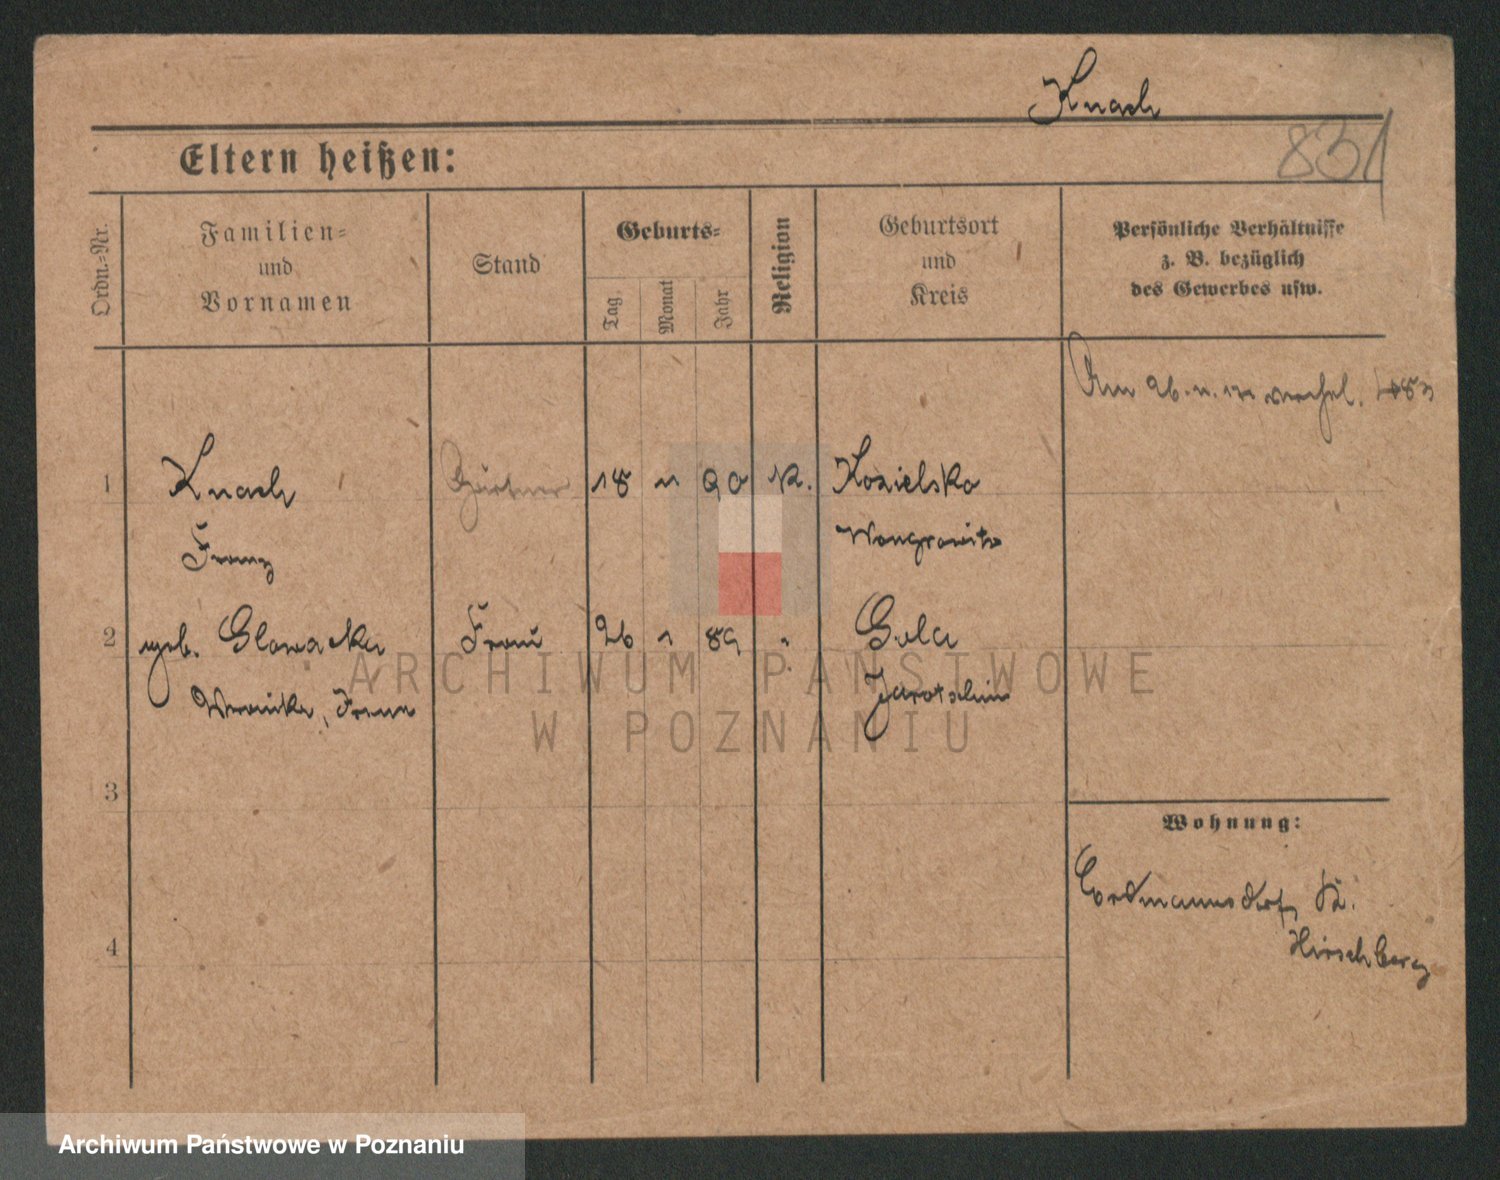 Knach
831
Eltern heißen:
Ordn.-Nr.
Familien-
und
Vornamen
Stand
Geburts-
Tag
Monat
Jahr
Religion
Geburtsort
und
Kreis
Persönliche Verhältnisse
z. B. bezüglich
des Gewerbes usw.
Am 26. verehel.
1 Knach Gärtner 18 90 K. Kozielsko
Franz Wongrowitz
2 geb. Glowacka Frau 26 1 89 " Gola
Weronika, Jarotschin
3
4
Wohnung:
Erdmannsdorf, Kr.
Hirschberg
ARCHIWUM PAŃSTWOWE
W POZNANIU
Archiwum Państwowe w Poznaniu